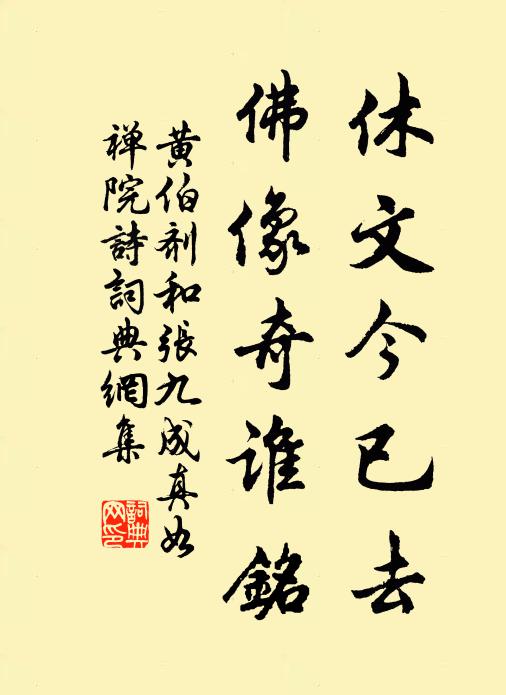 休文今已去
佛像奇谁銘
黄伯剂和張九成真如
禅院詩詞典網集
詞典网印